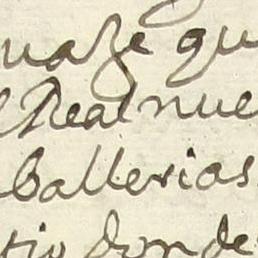 uaze qu
Real nue
ballerias
tio donde